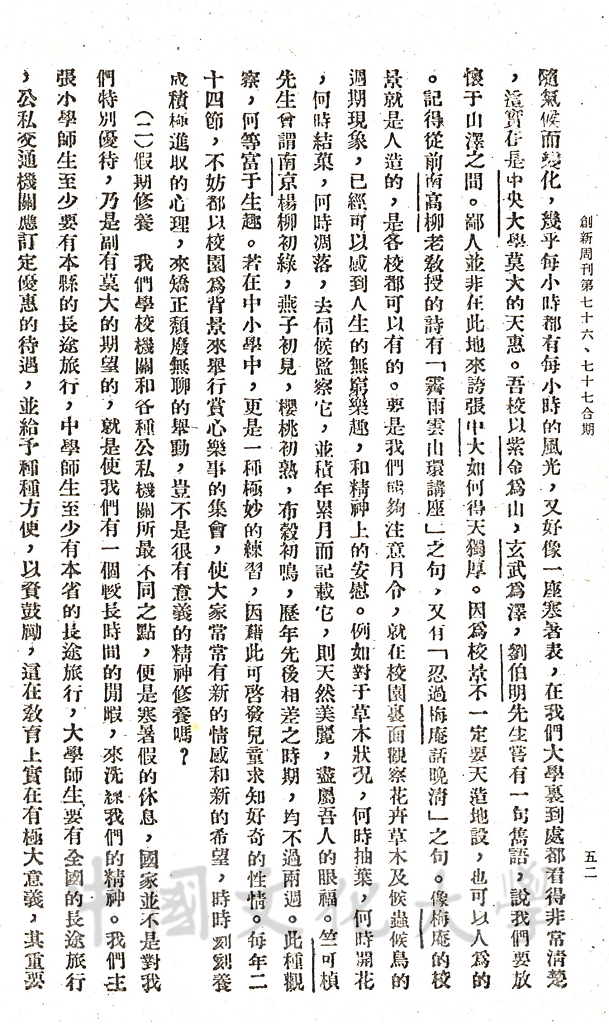 創新周刊第七十六、七十七合期
五二
隨氣候而變化，幾乎每小時都有每小時的風光，又好像一座寒暑表，在我們大學裏到處都看得非常清楚
，這實在是中央大學莫大的天惠。吾校以紫金爲山，玄武爲澤，劉伯明先生嘗有一句雋語，說我們要放
懷于山澤之間。鄙人並非在此地來誇張中大如何得天獨厚。因爲校景不一定要天造地設，也可以人爲的
。記得從前南高柳老教授的詩有「霽雨雲山環講座」之句，又有「忍過梅庵話晚清」之句。像梅庵的校
景就是人造的，是各校都可以有的。要是我們能夠注意月令，就在校園裏面觀察花卉草木及候蟲候鳥的
週期現象，已經可以感到人生的無窮樂趣，和精神上的安慰。例如對于草木狀況，何時抽葉，何時開花
，何時結菓，何時凋落，去伺候監察它，並積年累月而記載它，則天然美麗，盡屬吾人的眼福。竺可楨
先生曾謂南京楊柳初綠，燕子初見，櫻桃初熟，布穀初鳴，歷年先後相差之時期，均不過兩週。此種觀
察，何等富于生趣。若在中小學中，更是一種極妙的練習，因藉此可啓發兒童求知好奇的性情。每年二
十四節，不妨都以校園爲背景來舉行賞心樂事的集會，使大家常常有新的情感和新的希望，時時刻刻養
成積極進取的心理，來矯正頹廢無聊的舉動，豈不是很有意義的精神修養嗎？
（二）假期修養　我們學校機關和各種公私機關所最不同之點，便是寒暑假的休息，國家並不是對我
們特別優待，乃是副有莫大的期望的，就是使我們有一個較長時間的閒暇，來洗鍊我們的精神。我們主
張小學師生至少要有本縣的長途旅行，中學師生至少有本省的長途旅行，大學師生要有全國的長途旅行
，公私交通機關應訂定優惠的待遇，並給予種種方便，以資鼓勵，這在教育上實在有極大意義，其重要
中國文化大學